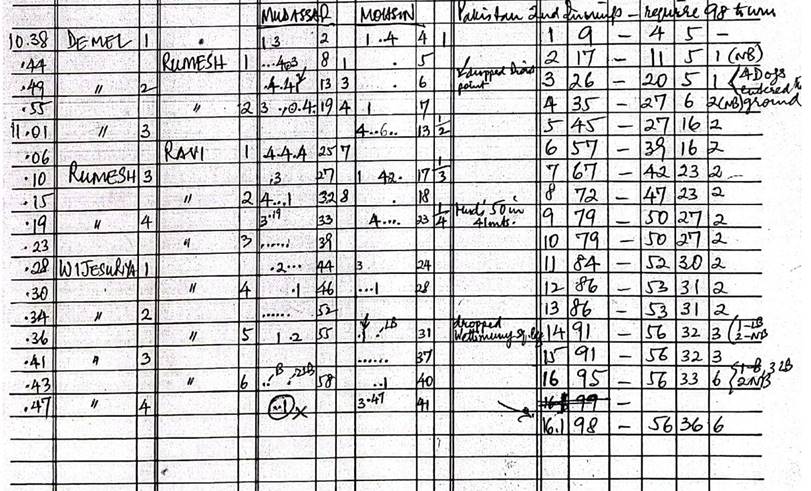 MUDASSAR MOHSIN Pakistan 2nd Innings - require 98 to win
10.38 DEMEL 1 . 13 2 1.4 4 1 1 9 - 4 5 -
.44 RUMESH 1 ...4.3 8 1 . 5 2 17 - 11 5 1 (NB)
.49 " 2 .4.4 13 3 . 6 dropped point 3 26 - 20 5 1 4 Dogs entered
.55 " 2 3 .0.4. 19 4 1 7 4 35 - 27 6 2 (NB) ground
11.01 " 3 4..6.. 13 1/2 5 45 - 27 16 2
.06 RAVI 1 .4.4.4 25 7 6 57 - 39 16 2
.10 RUMESH 3 .3 27 1 42. 17 1/3 7 67 - 42 23 2 -
.15 " 2 4...1 32 8 . 18 8 72 - 47 23 2
.19 " 4 3.19 33 4.... 23 1/4 Mud's 50 in 41 mts. 9 79 - 50 27 2
.23 " 3 ...... 39 10 79 - 50 27 2
.28 WIJESURIYA 1 .2... 44 3 24 11 84 - 52 30 2
.30 " 4 .1 46 ...1 28 12 86 - 53 31 2
.34 " 2 ...... 52 13 86 - 53 31 2
.36 " 5 1.2 55 .1. LB 31 dropped Wettimuny sq. leg 14 91 - 56 32 3 (1-LB 2-NB
.41 " 3 ...... 37 15 91 - 56 32 3
.43 " 6 ..B .2LB 58 ..1 40 16 95 - 56 33 6 (1-B, 3 LB 2NB
.47 " 4 ..1 x 3.47 41 16.1 99 -
16.1 98 - 56 36 6